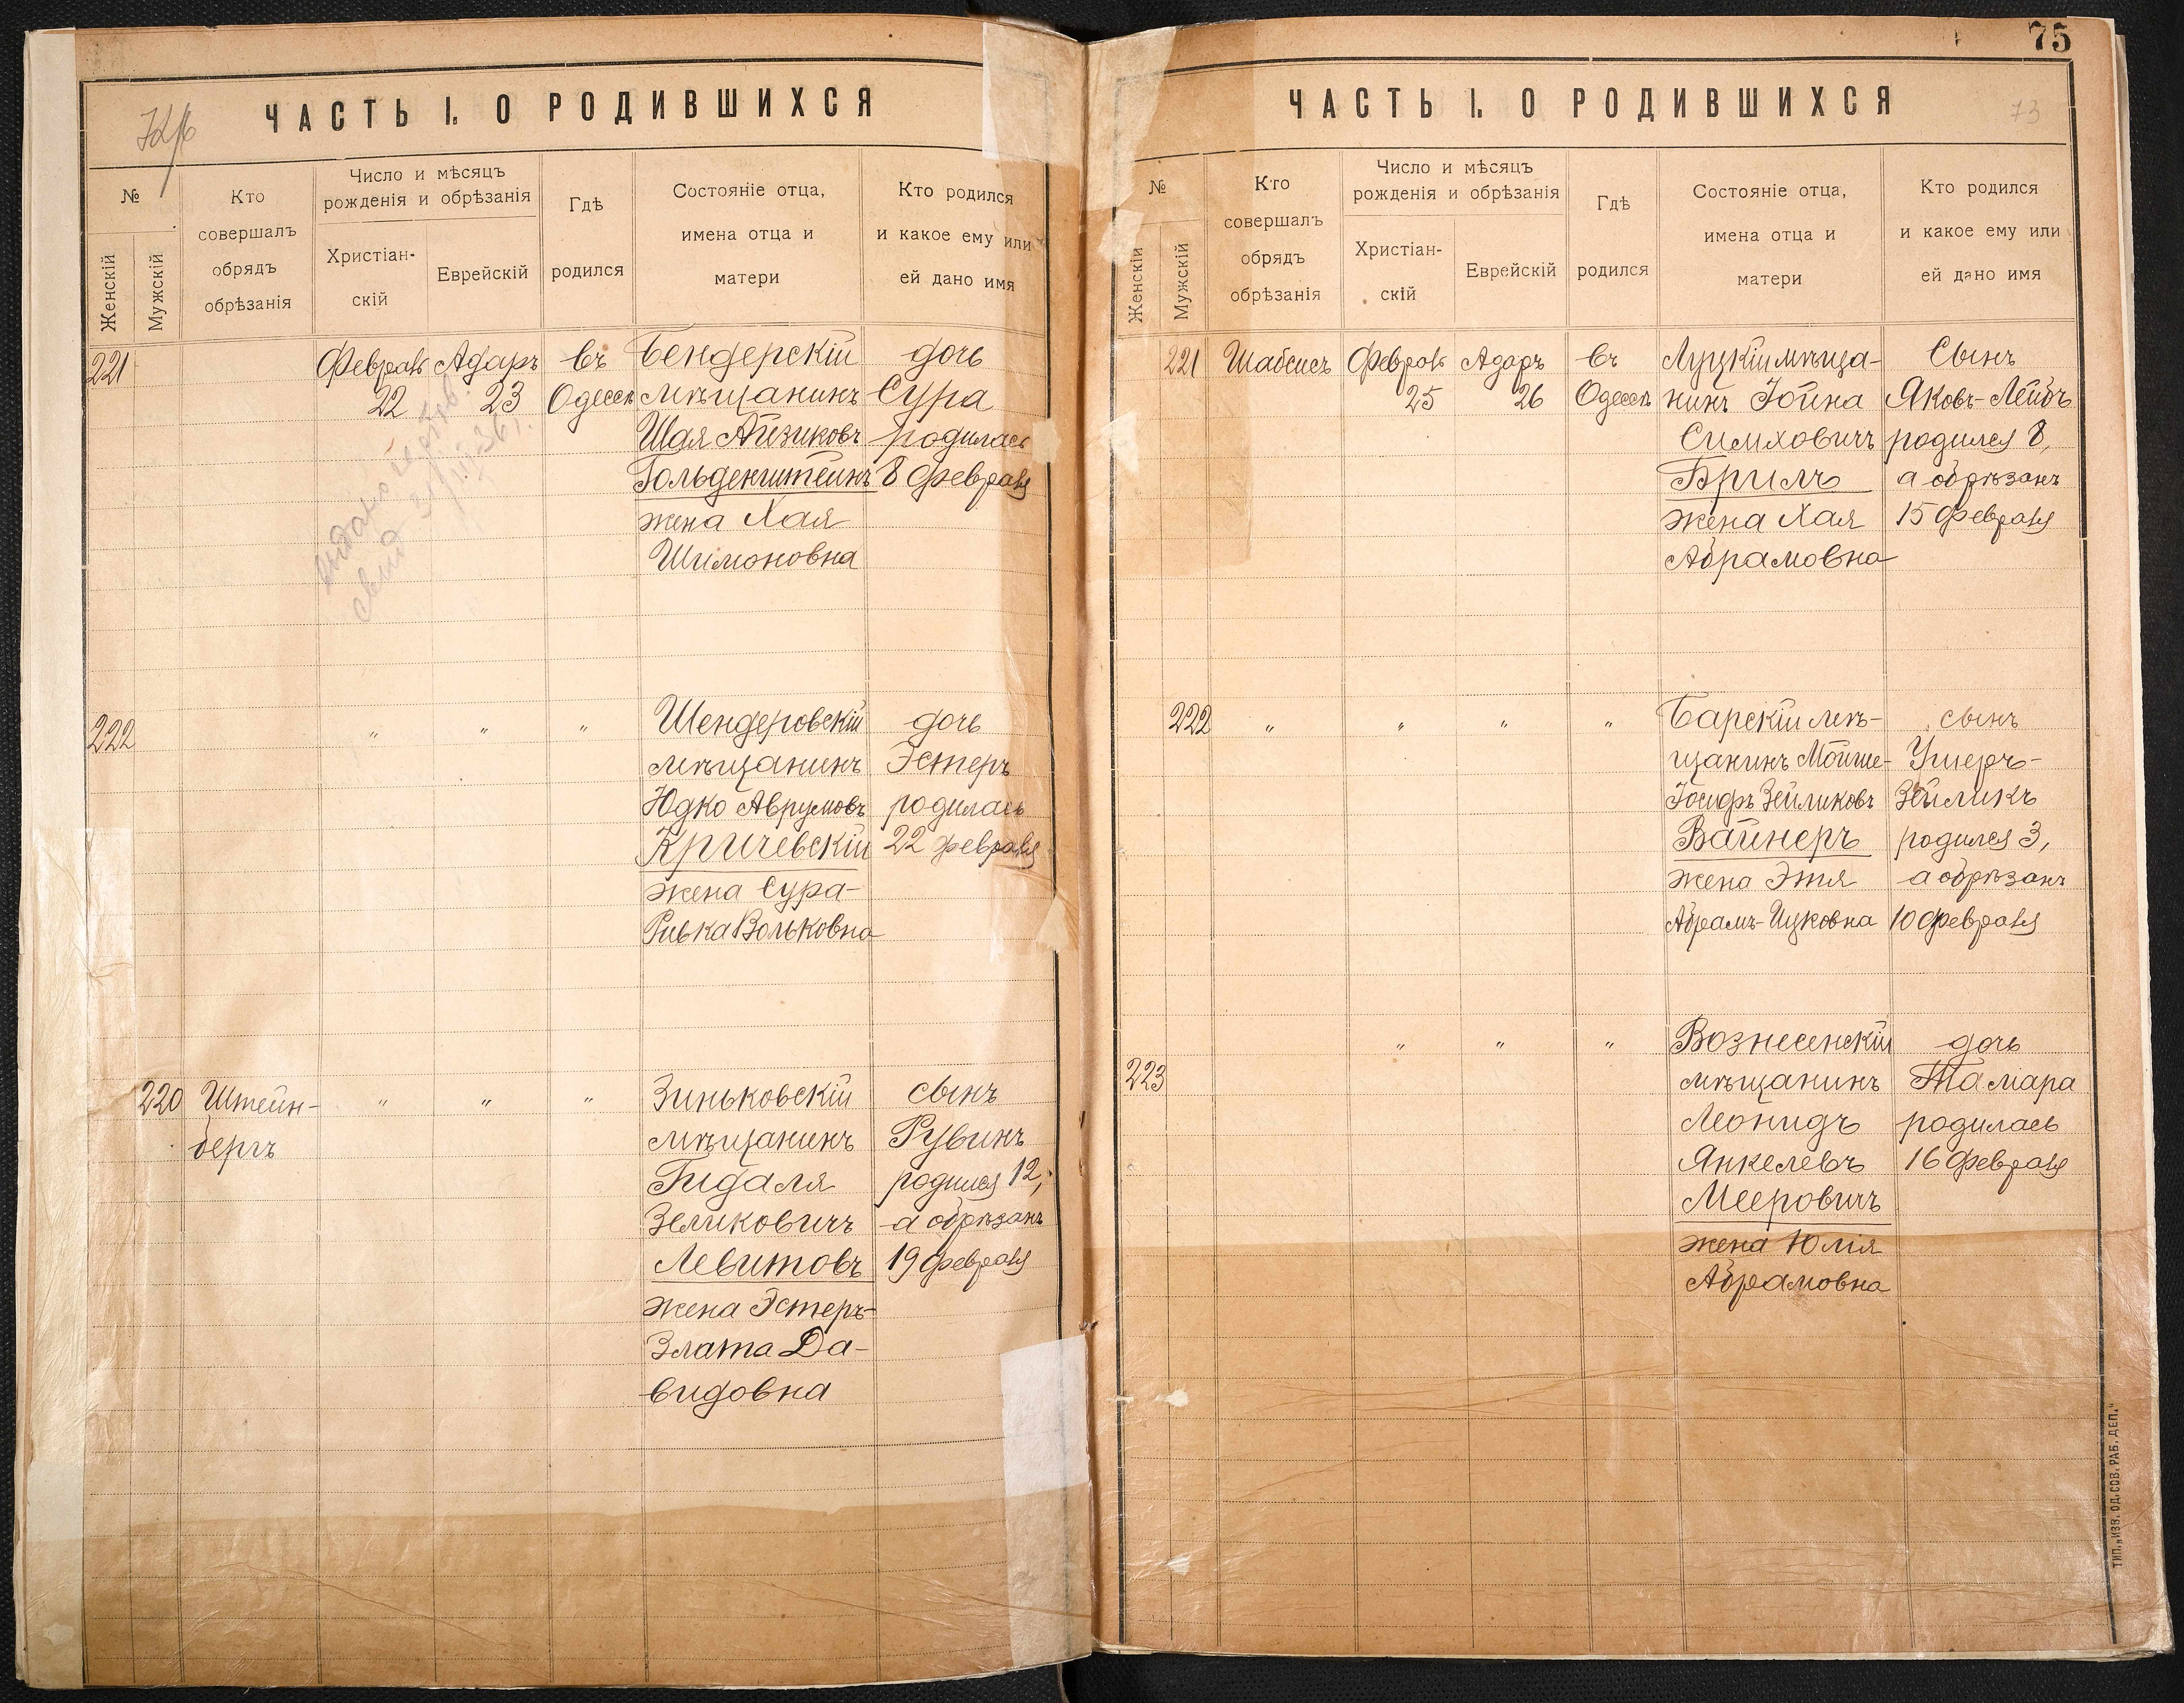 ЧАСТЬ I. О РОДИВШИХСЯ
№
Женскій
Мужскій
Кто
совершалъ
обрядъ
обрѣзанія
Число и мѣсяцъ
рожденія и обрѣзанія
Христіан-
скій
Еврейскій
Гдѣ
родился
Состояніе отца,
имена отца и
матери
Кто родился
и какое ему или
ей дано имя
221
Февраль
22
Адаръ
23
въ
Одессѣ
Бендерскій
мѣщанинъ
Шая Айзиковъ
Гольденштейнъ
жена Хая
Шимоновна
дочь
Сура
родилась
8 февраля
выдано
свид
222
"
"
"
Шендеровскій
мѣщанинъ
Юдко Аврумовъ
Кричевскій
жена Сура-
Ривка Вольковна
дочь
Эстеръ
родилась
22 февраля
220
Штейн-
бергъ
"
"
"
Зиньковскій
мѣщанинъ
Гидаля
Зеликовичъ
Левитовъ
жена Эстеръ-
Злата Да-
видовна
сынъ
Рувинъ
родился 12,
а обрѣзанъ
19 февраля
75
ЧАСТЬ I. О РОДИВШИХСЯ
73
№
Женскій
Мужскій
Кто
совершалъ
обрядъ
обрѣзанія
Число и мѣсяцъ
рожденія и обрѣзанія
Христіан-
скій
Еврейскій
Гдѣ
родился
Состояніе отца,
имена отца и
матери
Кто родился
и какое ему или
ей дано имя
221
Шабсисъ
Февраль
25
Адаръ
26
въ
Одессѣ
Луцкій мѣща-
нинъ Іойна
Симховичъ
Бриль
жена Хая
Абрамовна
Сынъ
Яковъ-Лейбъ
родился 8,
а обрѣзанъ
15 февраля
222
"
"
"
"
Барскій мѣ-
щанинъ Мойше-
Іосифъ Зейликовъ
Вайнеръ
жена Этя
Абрамъ-Ицковна
сынъ
Ушеръ-
Зейликъ
родился 3,
а обрѣзанъ
10 февраля
223
"
"
"
Вознесенскій
мѣщанинъ
Леонидъ
Янкелевъ
Мееровичъ
жена Юлія
Абрамовна
дочь
Тамара
родилась
16 февраля
ТИП. „ИЗВ. ОД. СОВ. РАБ. ДЕП."